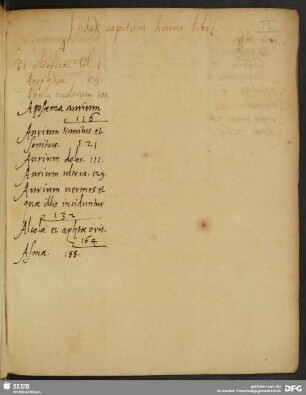 Index capitum huius libri
A
De alopecia. fol. 1
59.
102
Apostema aurium
126
Aurium tinnitus et
sonitus. 121
Aurium dolor. 111.
Aurium ulcera. 129.
Aurium vermes et
quae illis inciduntur
132
Alcola et aphtae oris.
164
Asma. 188.
SLUB
DFG